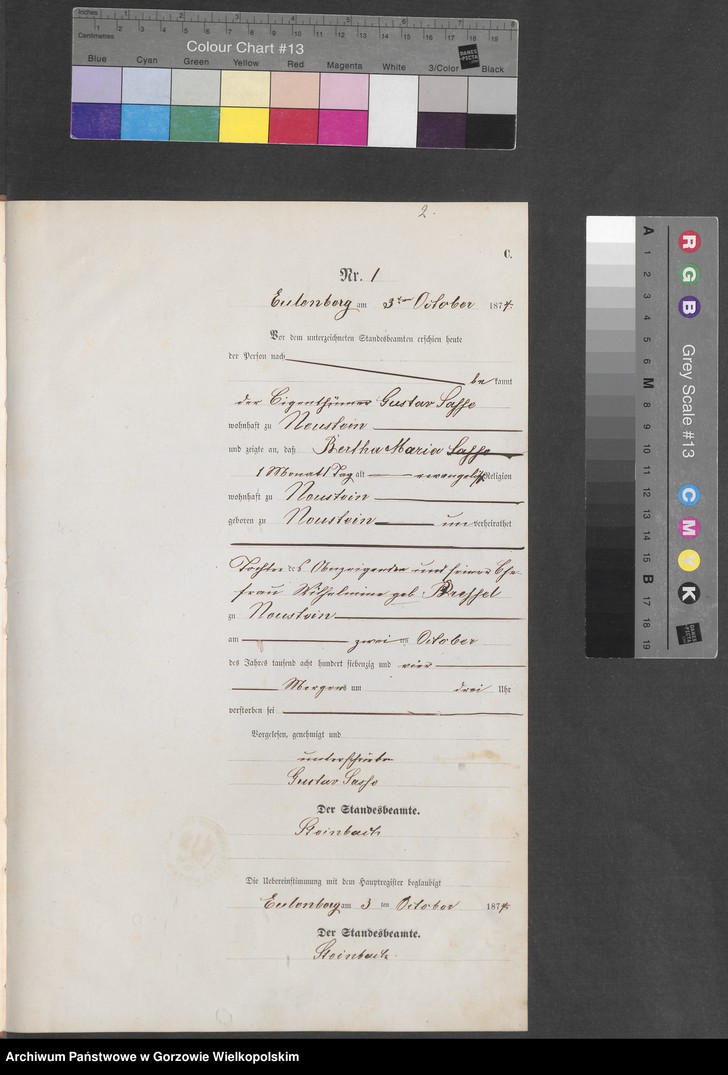 Inches 1 2 3 4 5 6 7 8
Centimetres 1 2 3 4 5 6 7 8 9 10 11 12 13 14 15 16 17 18 19
Colour Chart #13
Blue Cyan Green Yellow Red Magenta White 3/Color Black
DANES
PICTA
2.
C.
Nr. 1
Eulenberg am 3ten October 1874.
Vor dem unterzeichneten Standesbeamten erschien heute
der Person nach
bekannt
der Eigenthümer Gustav Sasse
wohnhaft zu Neustein
und zeigte an, daß Bertha Maria Sasse
1 Monat 1 Tag alt evangelisch Religion
wohnhaft zu Neustein
geboren zu Neustein unverheirathet
Tochter des Anzeigenden und seiner Ehe-
frau Wilhelmine geb.
zu Neustein
am zwei ten October
des Jahres tausend acht hundert siebenzig und vier
Morgens um drei Uhr
verstorben sei
Vorgelesen, genehmigt und
unterschrieben
Gustav Sasse
Der Standesbeamte.
Steinbach
Die Uebereinstimmung mit dem Hauptregister beglaubigt
Eulenberg am 3 ten October 1874.
Der Standesbeamte.
Steinbach.
Grey Scale #13
A 1 2 3 4 5 6 M 8 9 10 11 12 13 14 15 B 17 18 19
R G B C M Y K
DANES
PICTA
Archiwum Państwowe w Gorzowie Wielkopolskim